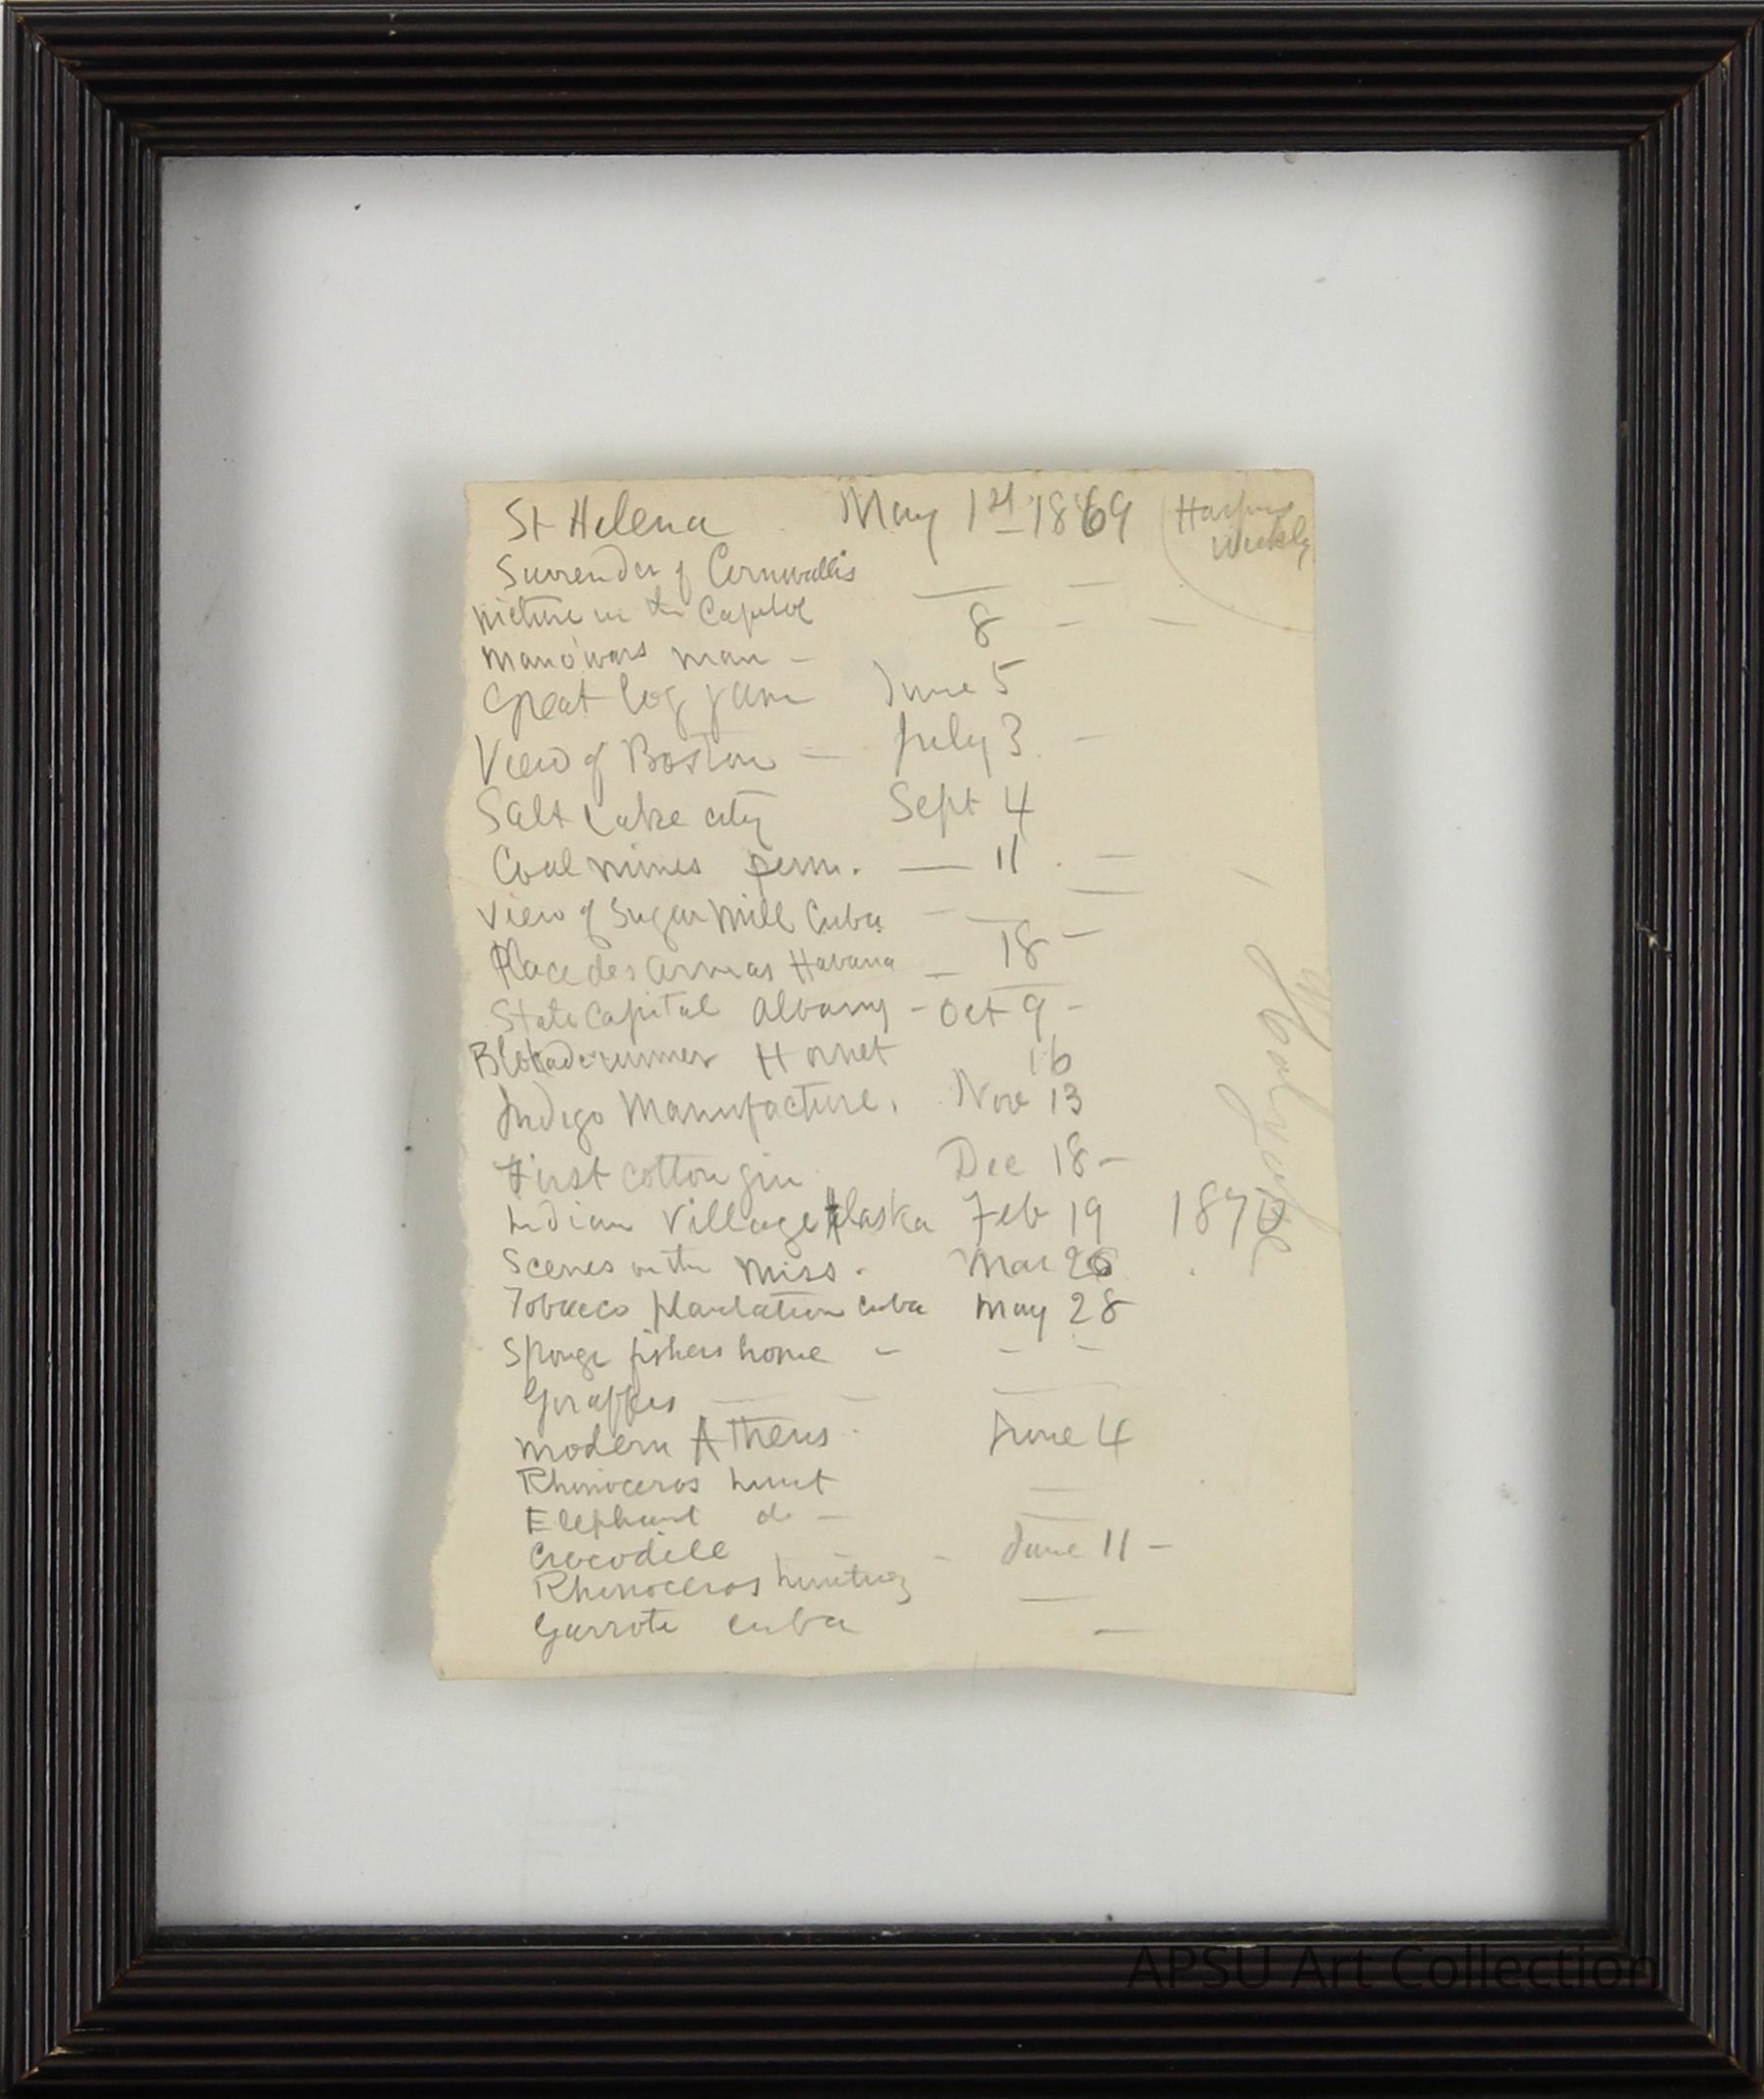 St Helena May 1st 1869 (Harpers
Weekly
Surrender of Cornwallis — —
picture in the Capitol 8 — —
Man o'wars man —
Great log jam June 5
View of Boston — July 3 —
Salt Lake city Sept 4
Coal mines penn. — 11 . —
View of Sugar Mill Cuba — — —
Place des Armas Habana — 18 —
State Capital Albany - Oct 9 -
Blokade runner Hornet 16
Indigo Manufacture. Nov 13
First cotton gin Dec 18 -
Indian Village Alaska Feb 19 1870
Scenes on the Miss. Mar 26
Tobacco plantation Cuba May 28
Sponge fishers home - - -
Giraffes — - —
Modern Athens - June 4
Rhinoceros hunt —
Elephant do — —
Crocodile - - June 11 -
Rhinoceros hunting —
Garrote Cuba —
APSU Art Collection